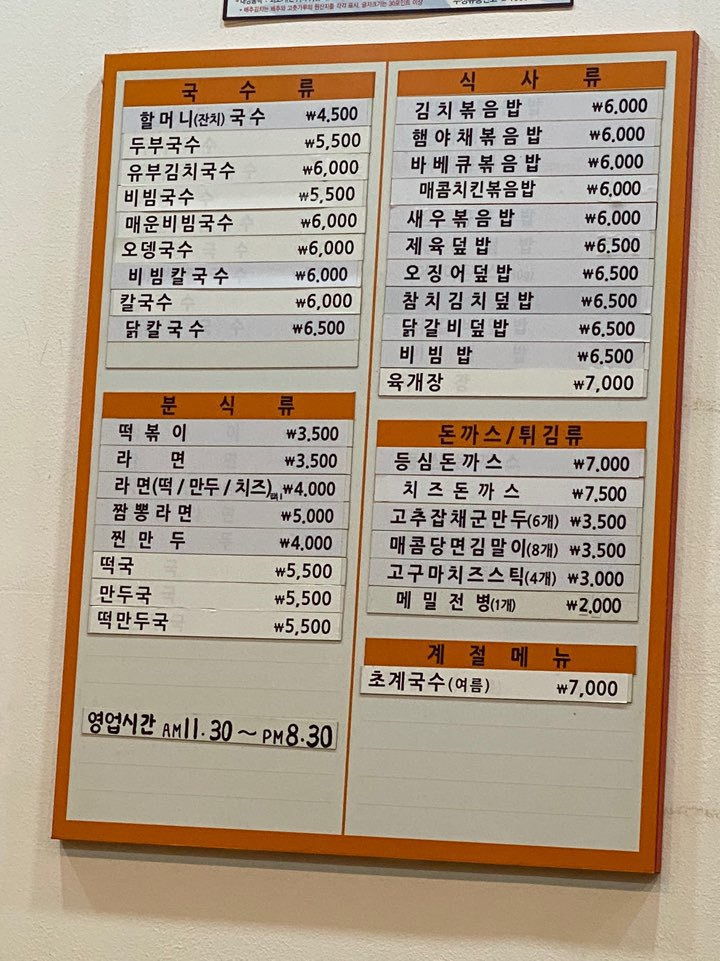 * 배추김치는 배추와 고춧가루의 원산지를 각각 표시, 글자크기는 30포인트 이상
국 수 류
할머니(잔치) 국수 ₩4,500
두부국수 ₩5,500
유부김치국수 ₩6,000
비빔국수 ₩5,500
매운비빔국수 ₩6,000
오뎅국수 ₩6,000
비빔칼국수 ₩6,000
칼국수 ₩6,000
닭칼국수 ₩6,500
분 식 류
떡 볶 이 ₩3,500
라 면 ₩3,500
라면(떡/만두/치즈) ₩4,000
짬뽕라면 ₩5,000
찐 만 두 ₩4,000
떡국 ₩5,500
만두국 ₩5,500
떡만두국 ₩5,500
영업시간 AM11.30 ~ PM8.30
식 사 류
김치볶음밥 ₩6,000
햄야채볶음밥 ₩6,000
바베큐볶음밥 ₩6,000
매콤치킨볶음밥 ₩6,000
새우볶음밥 ₩6,000
제육덮밥 ₩6,500
오징어덮밥 ₩6,500
참치김치덮밥 ₩6,500
닭갈비덮밥 ₩6,500
비 빔 밥 ₩6,500
육개장 ₩7,000
돈까스/튀김류
등심돈까스 ₩7,000
치즈돈까스 ₩7,500
고추잡채군만두(6개) ₩3,500
매콤당면김말이(8개) ₩3,500
고구마치즈스틱(4개) ₩3,000
메밀전병(1개) ₩2,000
계 절 메 뉴
초계국수(여름) ₩7,000